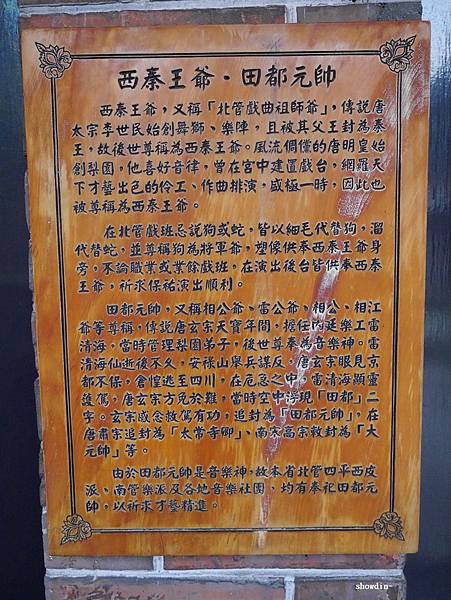 西秦王爺·田都元帥
西秦王爺，又稱「北管戲曲祖師爺」，傳說唐
太宗李世民始創舞獅、樂陣，且被其父王封為秦
王，故後世尊稱為西秦王爺。風流倜儻的唐明皇始
創梨園，他喜好音律，曾在宮中建置戲台，網羅天
下才藝出色的伶工、作曲排演，盛極一時，因此也
被尊稱為西秦王爺。
在北管戲班忌說狗或蛇，皆以細毛代替狗，溜
代替蛇，並尊稱狗為將軍爺，塑像供奉西秦王爺身
旁，不論職業或業餘戲班，在演出後台皆供奉西秦
王爺，祈求保祐演出順利。
田都元帥，又稱相公爺、雷公爺、相公、相江
爺等尊稱，傳說唐玄宗天寶年間，擔任內廷樂工雷
清海，當時管理梨園弟子，後世尊奉為音樂神。雷
清海仙逝後不久，安祿山舉兵謀反，唐玄宗眼見京
都不保，倉惶逃至四川，在危急之中，雷清海顯靈
護駕，唐玄宗方免於難，當時空中浮現「田都」二
字。玄宗感念救駕有功，追封為「田都元帥」，在
唐肅宗追封為「太常寺卿」、南宋高宗敕封為「大
元帥」等。
由於田都元帥是音樂神，故本省北管四平西皮
派、南管樂派及各地音樂社團，均有奉祀田都元
帥，以祈求才藝精進。
showdin~